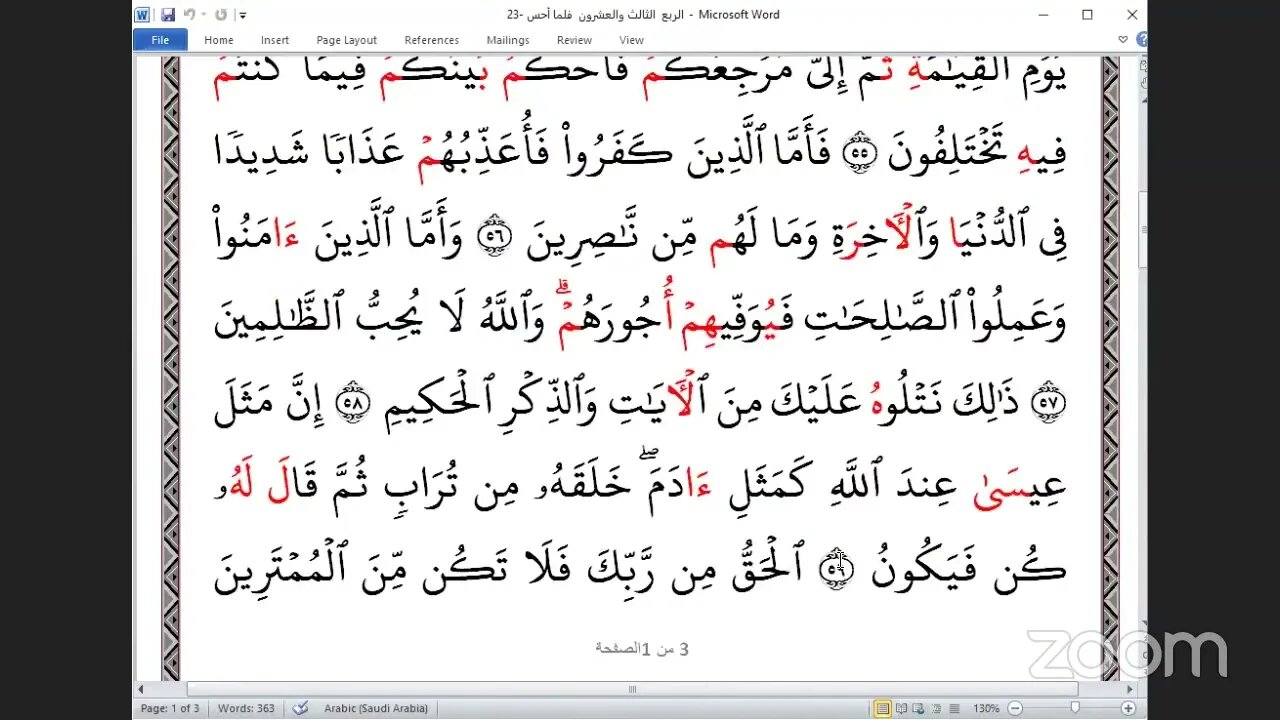 23- الربع الثالث والعشرون فلما أحس - Microsoft Word
File Home Insert Page Layout References Mailings Review View
يَوْمِ ٱلْقِيَٰمَةِ ثُمَّ إِلَىَّ مَرْجِعُكُمْ فَأَحْكُمُ بَيْنَكُمْ فِيمَا كُنتُمْ
فِيهِ تَخْتَلِفُونَ ٥٥ فَأَمَّا ٱلَّذِينَ كَفَرُوا۟ فَأُعَذِّبُهُمْ عَذَابًا شَدِيدًا
فِى ٱلدُّنْيَا وَٱلْأَخِرَةِ وَمَا لَهُم مِّن نَّٰصِرِينَ ٥٦ وَأَمَّا ٱلَّذِينَ ءَامَنُوا۟
وَعَمِلُوا۟ ٱلصَّٰلِحَٰتِ فَيُوَفِّيهِمْ أُجُورَهُمْ ۗ وَٱللَّهُ لَا يُحِبُّ ٱلظَّٰلِمِينَ
٥٧ ذَٰلِكَ نَتْلُوهُ عَلَيْكَ مِنَ ٱلْأَيَٰتِ وَٱلذِّكْرِ ٱلْحَكِيمِ ٥٨ إِنَّ مَثَلَ
عِيسَىٰ عِندَ ٱللَّهِ كَمَثَلِ ءَادَمَ ۖ خَلَقَهُۥ مِن تُرَابٍ ثُمَّ قَالَ لَهُۥ
كُن فَيَكُونُ ٥٩ ٱلْحَقُّ مِن رَّبِّكَ فَلَا تَكُن مِّنَ ٱلْمُمْتَرِينَ
3 من 1الصفحة
zoom
Page: 1 of 3 Words: 363 Arabic (Saudi Arabia) 130%